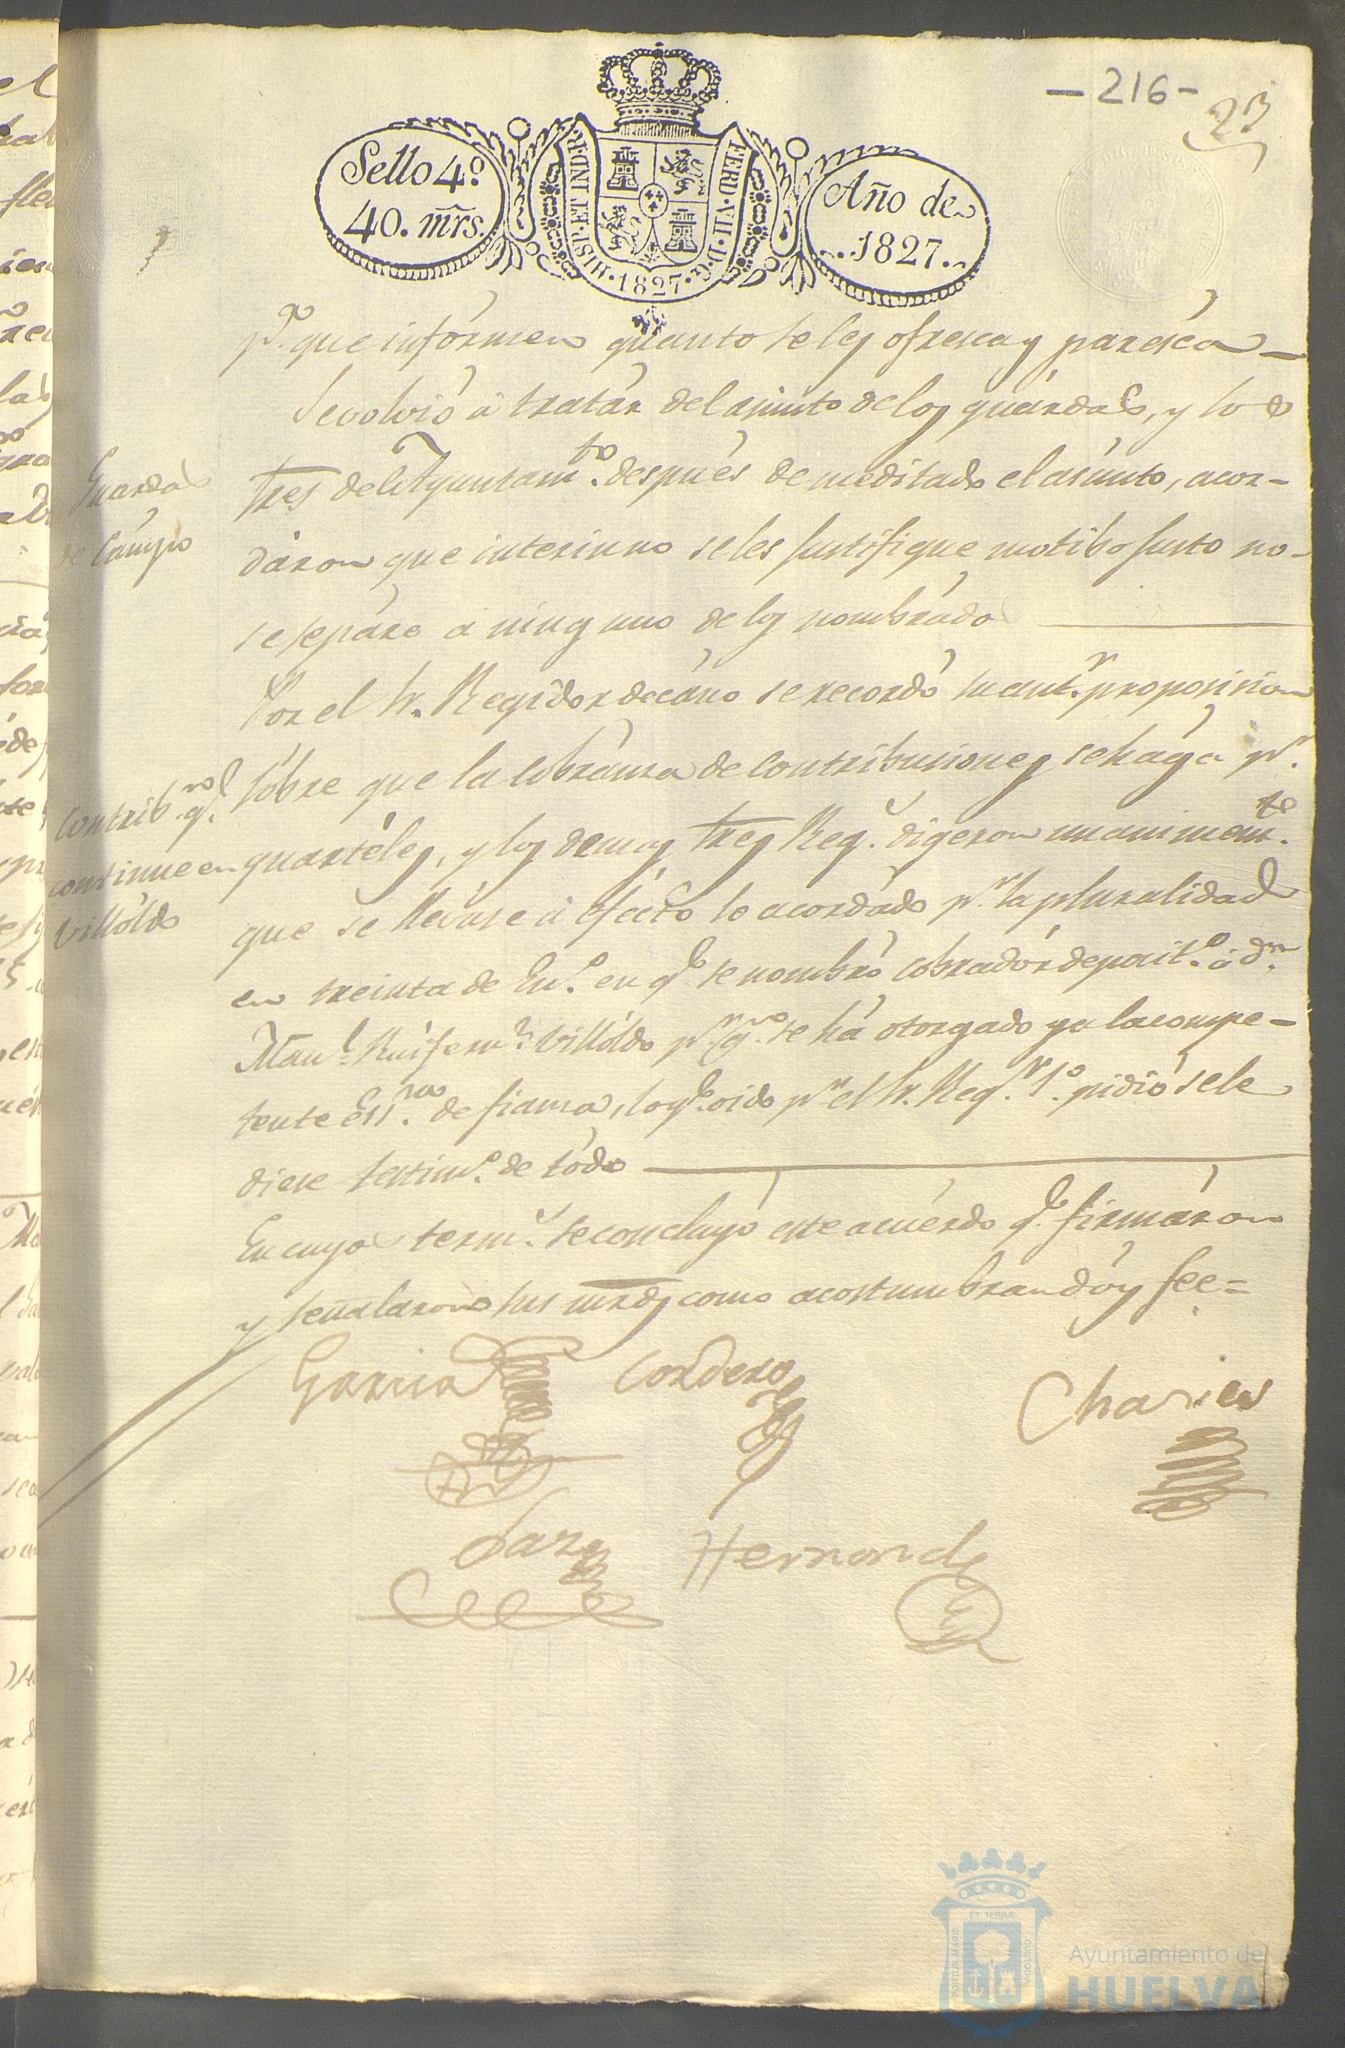 - 216 -
23
Sello 4º.
40. mrs.
HISP. ET IND. R.
FERD. VII. D. G.
1827.
Año de
1827.
pª. que informen quanto se les ofresca y paresca
Se volvió á tratar del asunto de los guardas, y los
Guardas
de Campo
tres del Ayuntamto. después de meditado el asunto, acor-
dáron que interinno se les justifique motibo justo no
se separe á ninguno de los nombrados
Por el Sr. Regidor decáno se recordó su antr. proposicion
sóbre que la cobránza de contribuciones se hága pr.
Contrib. qe.
continue en
Villoldo
quartéles, y los demas tres Reg. digeron unanimemte.
que se lleváse á efécto lo acordádo pr. la pluralidad
en treinta de Enº. en qe. se nombró cobradór deposit.º á Dn.
Manl. Villoldo pr. qn. se há otorgado ya la compe-
tente Essra. de fianza, lo qe. oido pr. el Sr. Regr. 1º. pidió se le
diese testimº. de tódo
En cuyos term.s se concluyó este acuérdo qe. firmáron
y señalaron sus mrds como acostumbran doy fee=
Garcia
Cordero
Charies
Paz
Hernandz
ET TERRÆ
PORTUS MARIS
CUSTODIA
Ayuntamiento de
HUELVA